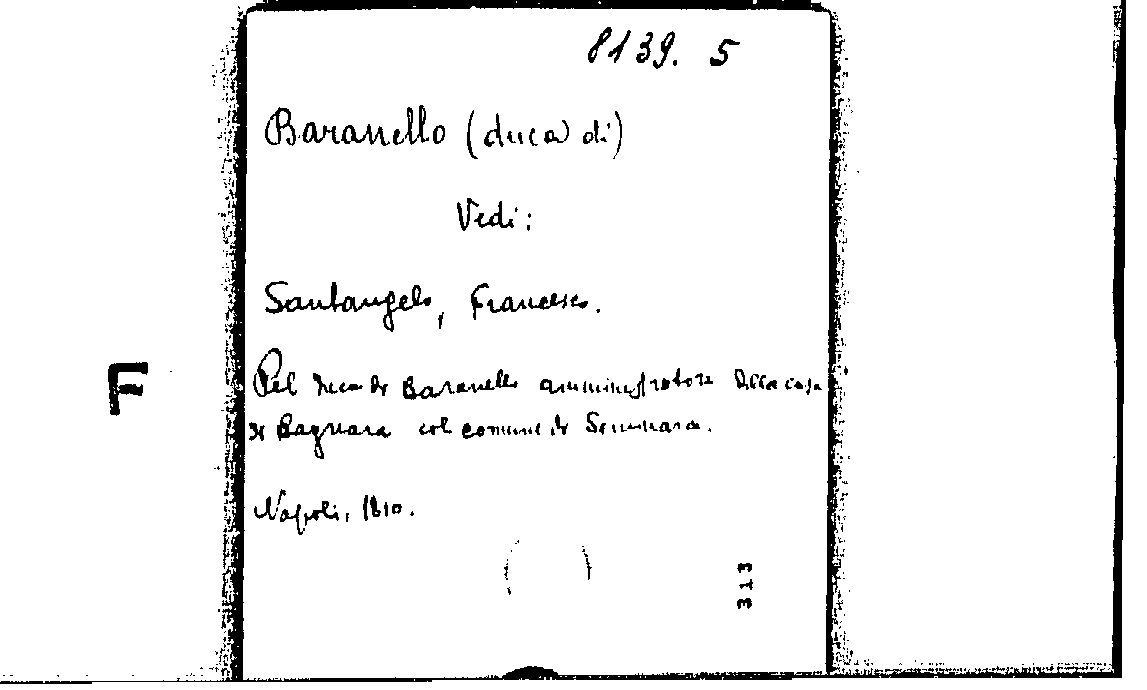 8139. 5
Baranello (duca di)
Vedi:
Santangelo, Francesco.
F
Pel duca di Baranello amministratore della casa
di Bagnara col comune di Seminara.
Napoli, 1810.
( )
313